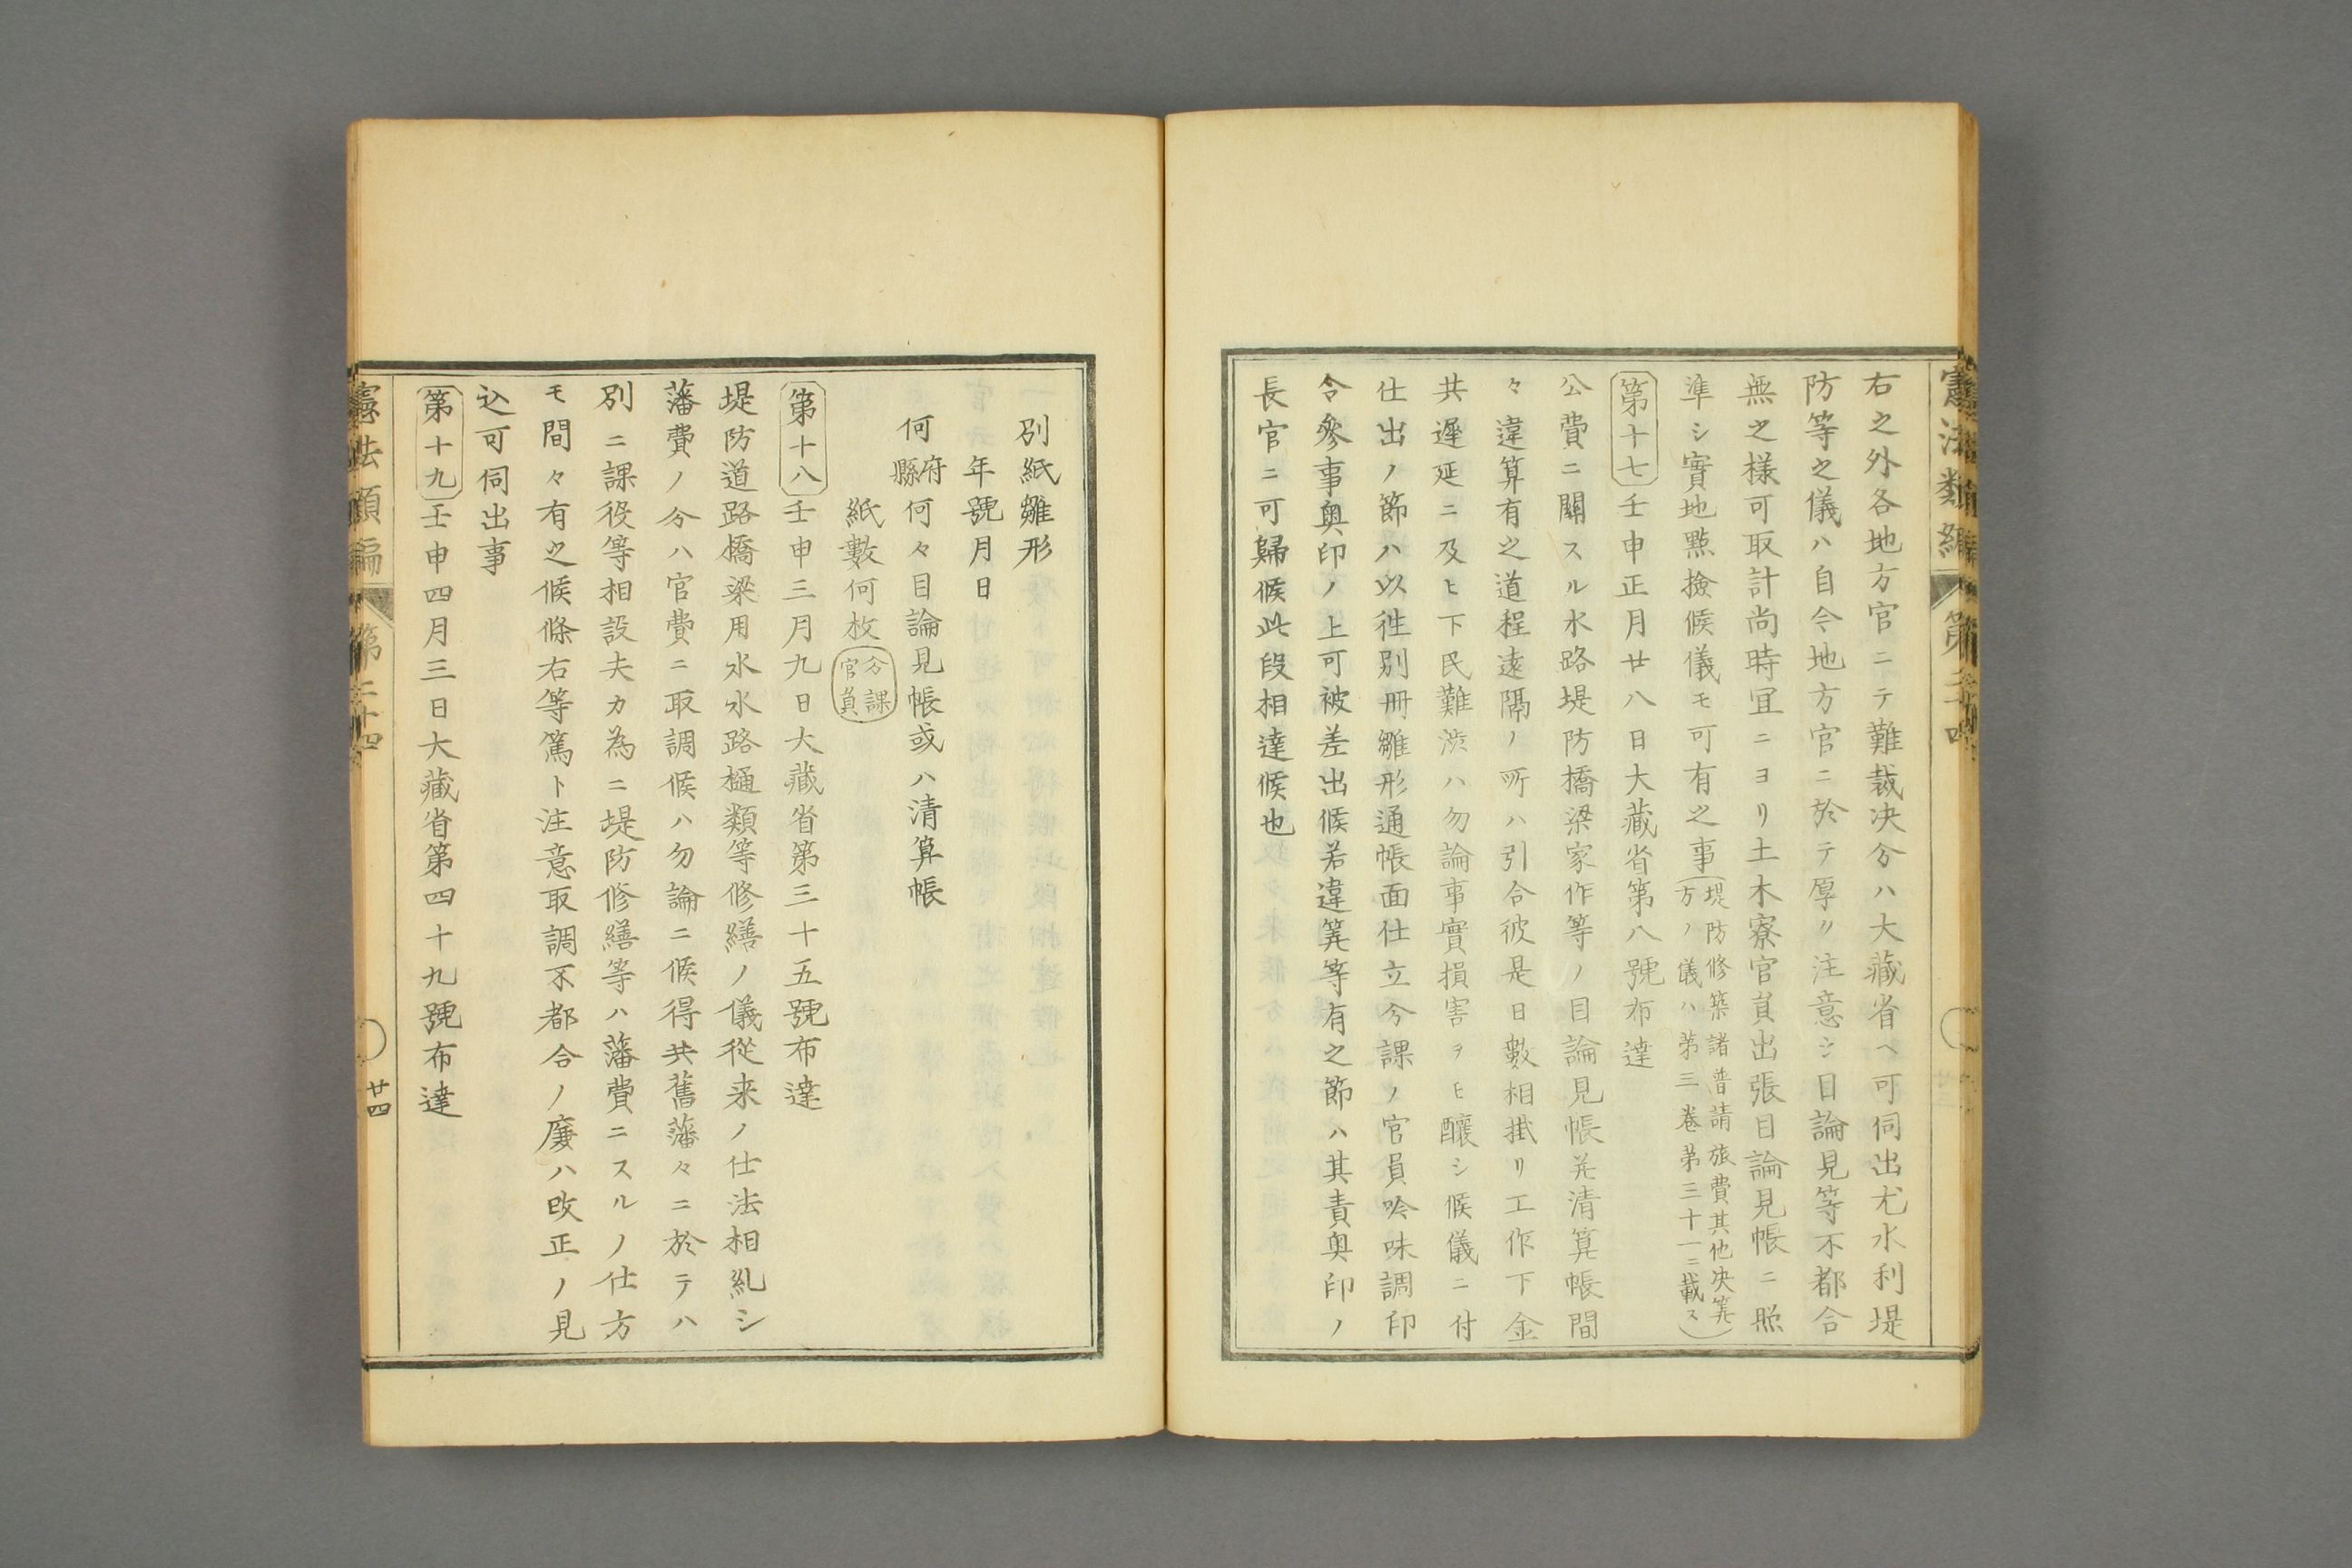 憲法類編 第二十四
右之外各地方官ニテ難裁决分ハ大藏省ヘ可伺出尤水利堤
防等之儀ハ自今地方官ニ於テ厚ク注意シ目論見等不都合
無之樣可取計尚時冝ニヨリ土木寮官員出張目論見帳ニ照
準シ實地點撿候儀モ可有之事(堤防修築諸普請旅費其他决筭
方ノ儀ハ第三卷第三十一ニ載ス)
第十七 壬申正月廿八日大藏省第八號布達
公費ニ關スル水路堤防橋梁家作等ノ目論見帳并清算帳間
々違算有之道程遠隔ノ所ハ引合彼是日數相掛リ工作下金
共遲延ニ及ヒ下民難渋ハ勿論事實損害ヲヒ釀シ候儀ニ付
仕出ノ節ハ以徃别冊雛形通帳面仕立今課ノ官員吟味調印
令參事奥印ノ上可被差出候若違筭等有之節ハ其責奥印ノ
長官ニ可歸候此段相達候也
別紙雛形
年號月日
何府縣何々目論見帳或ハ清算帳
紙數何枚 分課官員
第十八 壬申三月九日大藏省第三十五號布達
堤防道路橋梁用水水路樋類等修繕ノ儀從来ノ仕法相糺シ
藩費ノ分ハ官費ニ取調候ハ勿論ニ候得共舊藩々ニ於テハ
別ニ課役等相設夫カ為ニ堤防修繕等ハ藩費ニスルノ仕方
モ間々有之候條右等篤ト注意取調不都合ノ廉ハ改正ノ見
込可伺出事
第十九 壬申四月三日大藏省第四十九號布達
憲法類編 第二十四 廿四